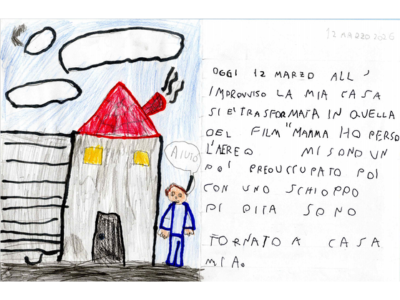 12 MARZO 2026
AIUTO
OGGI 12 MARZO ALL'
IMPROVVISO LA MIA CASA
SI E' TRASFORMATA IN QUELLA
DEL FILM "MAMMA HO PERSO
L'AEREO MI SONO UN
PO' PREOCCUPATO POI
CON UNO SCHIOPPO
DI DITA SONO
TORNATO A CASA
MIA.